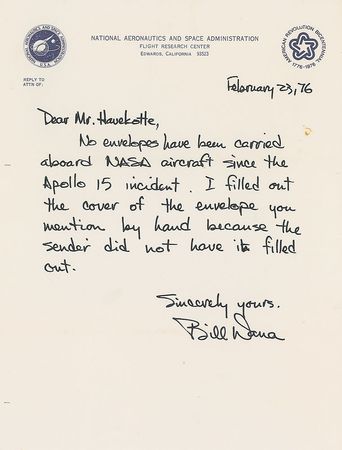 NATIONAL AERONAUTICS AND SPACE ADMINISTRATION
FLIGHT RESEARCH CENTER
EDWARDS, CALIFORNIA 93523
AMERICAN REVOLUTION BICENTENNIAL
1776-1976
NATIONAL AERONAUTICS AND SPACE ADMINISTRATION
U.S.A.
REPLY TO
ATTN OF:
February 23, 76
Dear Mr. Havekotte,
No envelopes have been carried
aboard NASA aircraft since the
Apollo 15 incident. I filled out
the cover of the envelope you
mention by hand because the
sender did not have it filled
out.
Sincerely yours.
Bill Dana